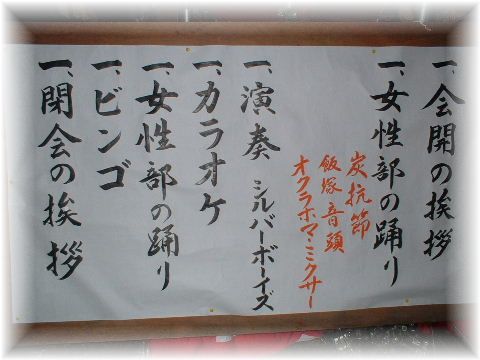 一、会開の挨拶
一、女性部の踊り
炭抗節
飯塚音頭
オクラホマ・ミクサー
一、演奏 シルバーボーイズ
一、カラオケ
一、女性部の踊り
一、ビンゴ
一、閉会の挨拶